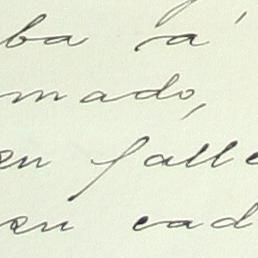 ba á
mado,
en falle
en cad